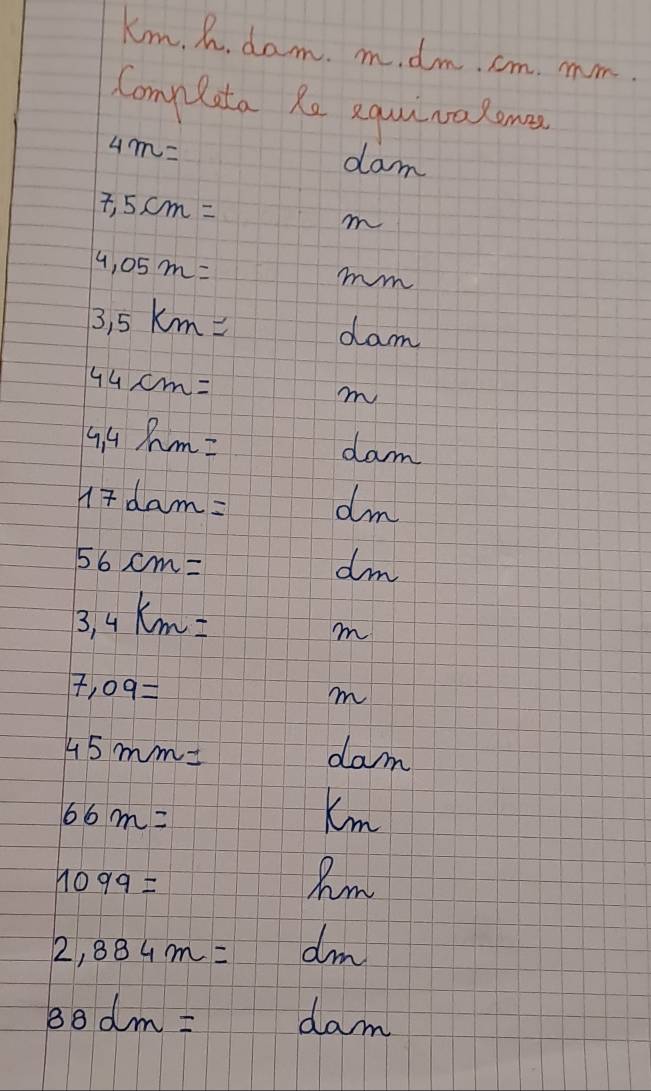 Km. h. dam. m. dm. cm. mm.
Completa le equivalenze
4 m = dam
7,5 cm = m
4,05 m = mm
3,5 Km = dam
44 cm = m
4,4 hm = dam
17 dam = dm
56 cm = dm
3,4 Km = m
7,09 = m
45 mm = dam
66 m = Km
1099 = hm
2,884 m = dm
88 dm = dam